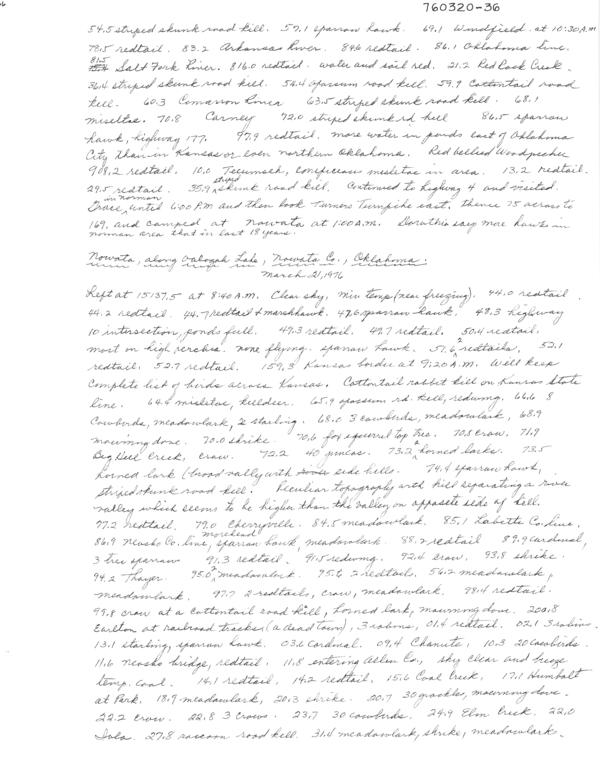 760320-36
54.5 striped skunk road kill. 57.1 sparrow hawk. 69.1 Windfield at 10:30 A.M
78.5 redtail. 83.2 Arkansas River. 84.6 redtail. 86.1 Oklahoma line.
81.5 Salt Fork River. 816.0 redtail. water and soil red. 21.2 Red Rock Creek.
36.4 striped skunk road kill. 54.4 opossum road kill. 59.9 Cottontail road
kill. 60.3 Cimarron River 63.5 striped skunk road kill. 68.1
miseltoe. 70.8 Carney 72.0 striped skunk rd kill 86.5 sparrow
hawk, highway 177. 97.9 redtail. more water in ponds east of Oklahoma
City than in Kansas or even northern Oklahoma. Red bellied Woodpecker
908.2 redtail. 10.0 Tecumseh, conspicuous misletoe in area. 13.2 redtail.
29.5 redtail. 35.9 striped skunk road kill. Continued to highway 4 and visited
in norman until 6:00 P.M and then took Turners Turnpike east, thence 75 across to
169, and camped at Nowata at 1:00 A.M. Dorothie say more hawks in
norman area that in last 18 years.
Nowata, along Oologah Lake, Nowata Co., Oklahoma.
March 21, 1976
Left at 15137.5 at 8:40 A.M. Clear sky, min temp (near freezing). 44.0 redtail.
44.2 redtail. 44.7 redtail & marshhawk. 47.6 sparrow hawk. 48.3 highway
10 intersection, ponds full. 49.3 redtail. 49.7 redtail. 50.4 redtail.
most on high perches. none flying. sparrow hawk. 51.6 2 redtails, 52.1
redtail. 52.7 redtail. 159.3 Kansas border at 9:20 A.M. Will keep
complete list of birds across Kansas. Cottontail rabbit kill on Kansas State
line. 64.4 misletoe, killdeer. 65.9 opossum rd. kill, redwing. 66.6 8
Cowbirds, meadowlark, 2 starling. 68.0 3 cowbirds, meadowlark, 68.9
mourning dove. 70.0 shrike. 70.6 fox squirrel top tree. 70.8 crow. 71.9
Big Hill Creek, crow. 72.2 40 juncos. 73.2 2 horned larks. 73.5
horned lark (broad vally with side hills. 74.4 sparrow hawk,
striped skunk road kill. Peculiar topography with hill separating a river
valley which seems to be higher than the valley on opposite side of hill.
77.2 redtail. 79.0 Cherryvile. 84.5 meadowlark. 85.1 Labette Co. line.
86.9 Neosho Co. line, morehead sparrow hawk, meadowlark 88.2 redtail 89.9 cardinal,
3 tree sparrow 91.3 redtail. 91.5 redwing. 92.4 crow. 93.8 shrike.
94.2 Thayer. 95.0 2 meadowlark. 95.6 2 redtails, 56.2 meadowlark,
meadowlark. 97.7 2 redtails, crow, meadowlark. 98.4 redtail.
99.8 crow at a cottontail road kill, horned lark, mourning dove. 200.8
Earlton at railroad tracks (a dead town), 3 robins, 01.4 redtail. 02.1 3 robins.
13.1 starling, sparrow hawk. 03.6 cardinal. 09.4 Chanute, 10.3 20 cowbirds.
11.6 neosho bridge, redtail. 11.8 entering Allen Co., sky clear and breeze
temp. cool. 14.1 redtail. 14.2 redtail. 15.6 Coal Creek. 17.1 Humbolt
at Park. 18.9 meadowlark, 20.3 shrike. 20.7 30 grackles, mourning dove.
22.2 crow. 22.8 3 crows. 23.7 30 cowbirds. 24.9 Elm Creek. 22.0
Iola. 27.8 raccoon road kill. 31.4 meadowlark, shrike, meadowlark.